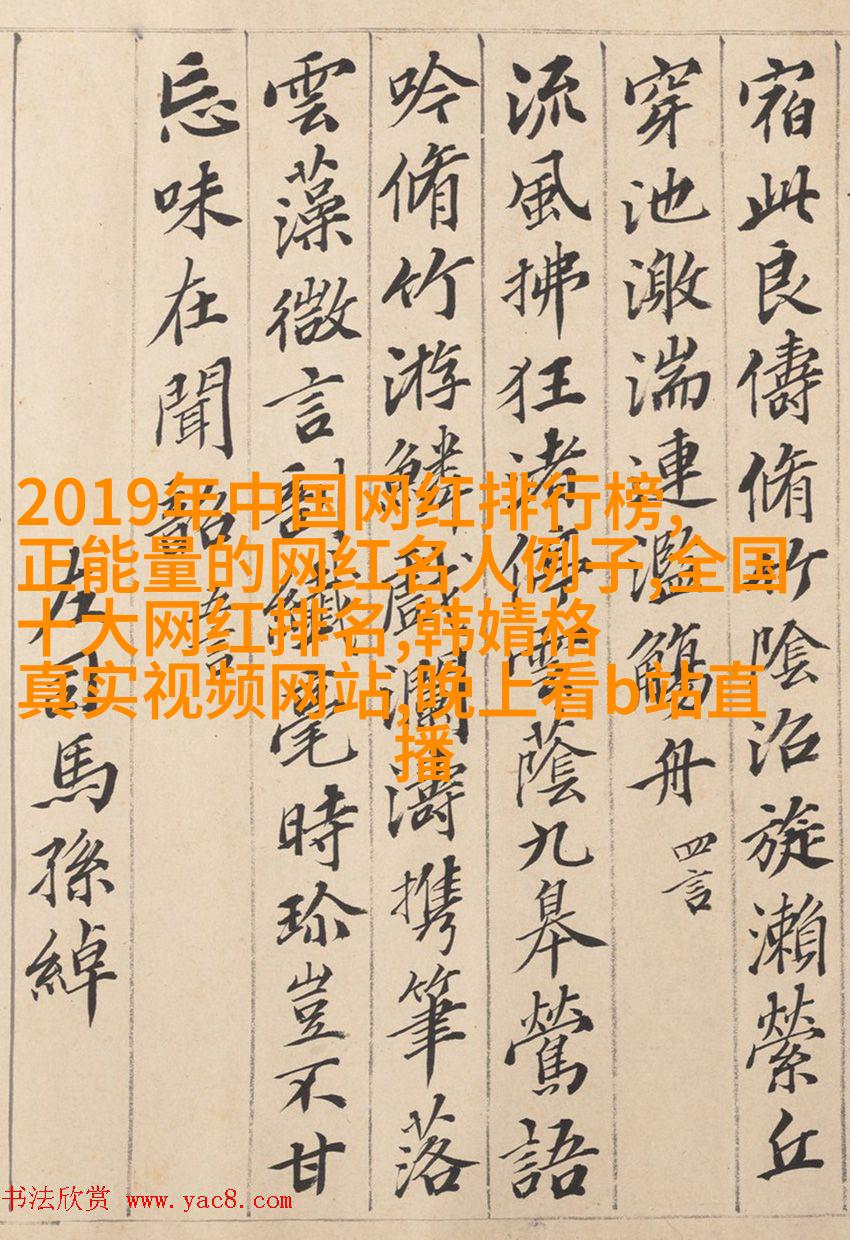 宿此良儔脩竹陰沼旋瀨縈丘
穿池激湍連濫觴舟 四言
流風拂狂渚停雲蔭九皋鶯語
吟脩竹游鱗戲瀾濤携筆落
雲藻微言剖纖毫時珎豈不甘
忘味在聞韶 五言
左司馬孫綽
2019年中国网红排行榜,
正能量的网红名人例子,全国
十大网红排名,韩婧格
真实视频网站,晚上看b站直
播
书法欣赏 www.yac8.com